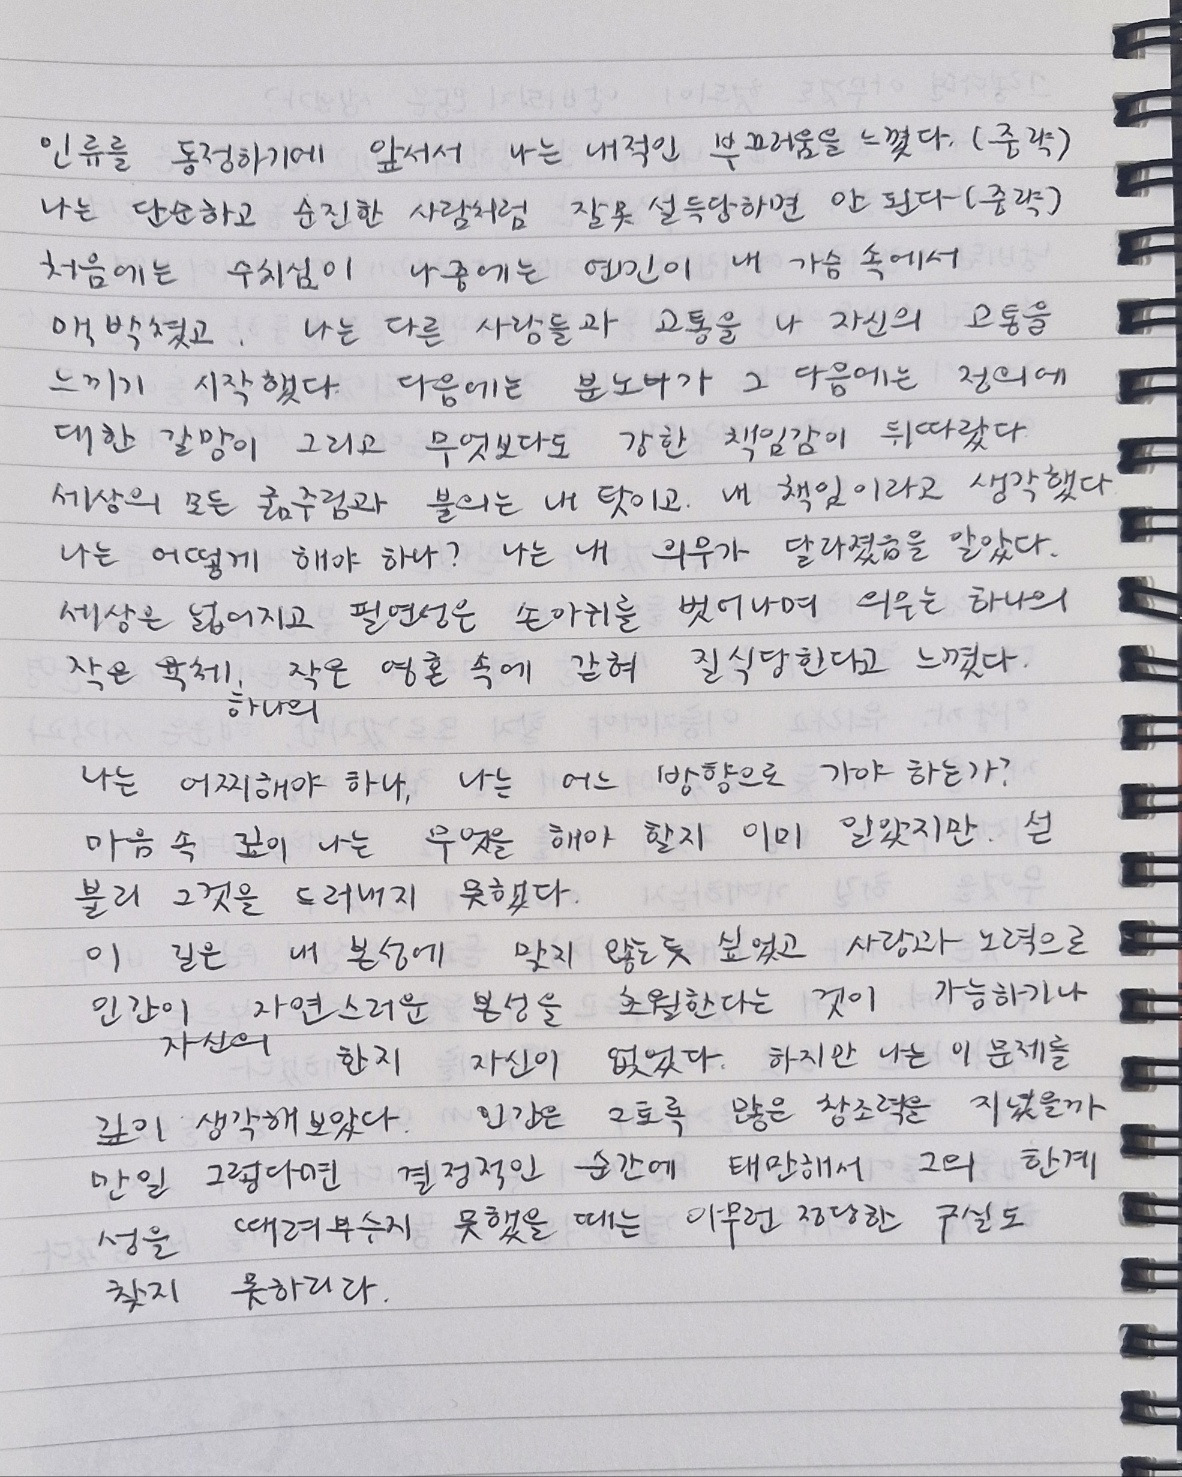 인류를 동정하기에 앞서서 나는 내적인 부끄러움을 느꼈다. (중략)
나는 단순하고 순진한 사람처럼 잘못 설득당하면 안 된다 (중략)
처음에는 수치심이 나중에는 연민이 내 가슴 속에서
맥박쳤고, 나는 다른 사람들과 고통을 나 자신의 고통을
느끼기 시작했다 다음에는 분노가 그 다음에는 정의에
대한 갈망이 그리고 무엇보다도 강한 책임감이 뒤따랐다
세상의 모든 굶주림과 불의는 내 탓이고, 내 책임이라고 생각했다
나는 어떻게 해야 하나? 나는 내 의무가 달라졌음을 알았다.
세상은 넓어지고 필연성은 손아귀를 벗어나며 의무는 하나의
작은 육체, 작은 영혼 속에 갇혀 질식당한다고 느꼈다.
하나의
나는 어찌해야 하나, 나는 어느 방향으로 가야 하는가?
마음 속 깊이 나는 무엇을 해야 할지 이미 알았지만. 섣
불리 그것을 드러내지 못했다.
이 길은 내 본성에 맞지 않는 듯 싶었고 사랑과 노력으로
인간이 자연스러운 본성을 초월한다는 것이 가능하기나
자신의 한지 자신이 없었다. 하지만 나는 이 문제를
깊이 생각해 보았다. 인간은 그토록 많은 창조력을 지녔을까
만일 그렇다면 결정적인 순간에 태만해서 그의 한계
성을 때려부수지 못했을 때는 아무런 정당한 구실도
찾지 못하리라.